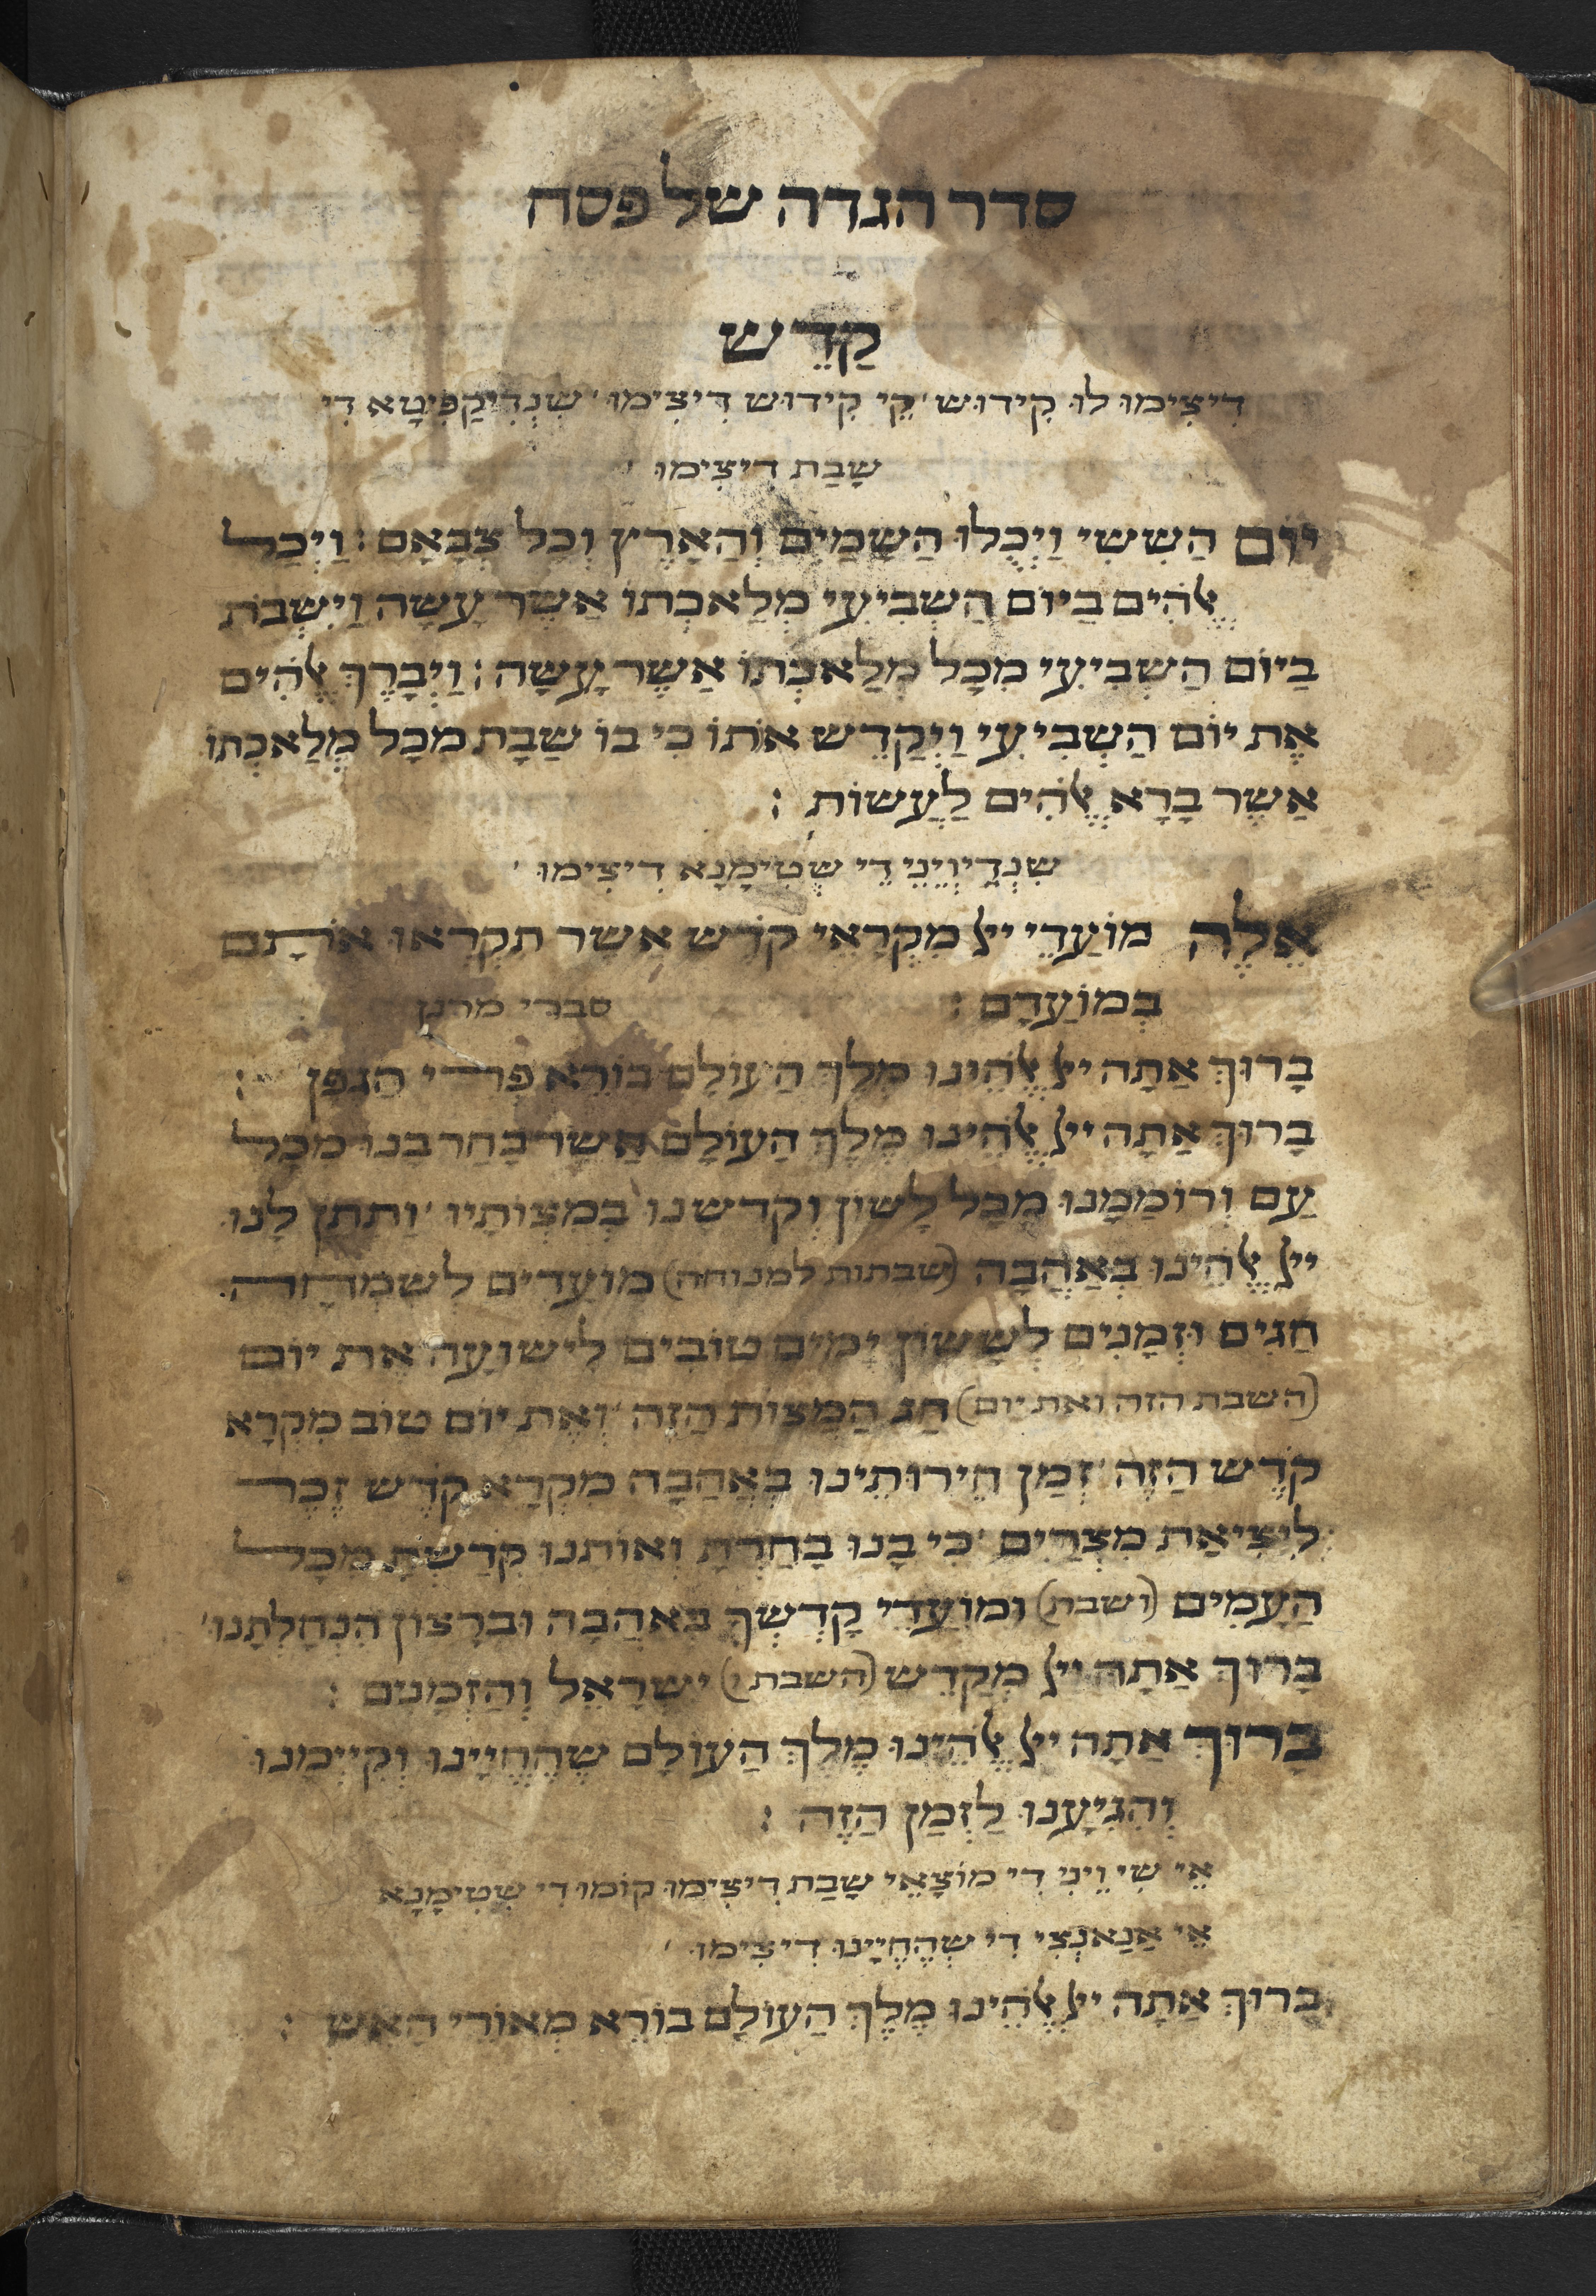 סדר הגדה של פסח
קַדֵשׁ
דִיצִימוּ לוּ קִידוּשׁ ׳ קֵי קִידוּשׁ דִיצִימוּ ׳ שִׁנְדִיקַפִּיטָא דִי
שַׁבַּת דִיצִימוּ ׳
יוֹם הַשִּׁשִׁי וַיְכֻלוּ הַשָּׁמַיִם וְהָאָרֶץ וְכָל צְבָאָם : וַיְכַל
אֱלֹהִים בַּיוֹם הַשְּׁבִיעִי מְלַאכְתּוֹ אֲשֶׁר עָשָׂה וַיִשְׁבּוֹת
בַּיוֹם הַשְּׁבִיעִי מִכָּל מְלַאכְתּוֹ אֲשֶׁר עָשָׂה : וַיְבָרֶךְ אֱלֹהִים
אֶת יוֹם הַשְּׁבִיעִי וַיְקַדֵשׁ אֹתוֹ כִּי בוֹ שָׁבַת מִכָּל מְלַאכְתּוֹ
אֲשֶׁר בָּרָא אֱלֹהִים לַעֲשׂוֹת :
שִׁנְדִיוֵינֵי דֵי שְׁטִימָנָא דִיצִימוּ ׳
אֵלֶה מוֹעֲדֵי ייָ מִקְרָאֵי קֹדֶשׁ אֲשֶׁר תִּקְרְאוּ אוֹתָם
בְּמוֹעֲדָם : סברי מרנן
בָּרוּךְ אַתָּה ייָ אֱלֹהֵינוּ מֶלֶךְ הָעוֹלָם בּוֹרֵא פְּרִי הַגֶּפֶן :
בָּרוּךְ אַתָּה ייָ אֱלֹהֵינוּ מֶלֶךְ הָעוֹלָם אֲשֶׁר בָּחַר בָּנוּ מִכָּל
עַם וְרוֹמְמָנוּ מִכָּל לָשׁוֹן וְקִדְּשָׁנוּ בְּמִצְוֹתָיו ׳ וַתִּתֶּן לָנוּ
ייָ אֱלֹהֵינוּ בְּאַהֲבָה (שבתות למנוחה) מוֹעֲדִים לְשִׂמְחָה
חַגִּים וּזְמַנִּים לְשָׂשׂוֹן יָמִים טוֹבִים לִישׁוּעָה אֶת יוֹם
(השבת הזה ואת יום) חַג הַמַּצּוֹת הַזֶּה ׳ וְאֶת יוֹם טוֹב מִקְרָא
קֹדֶשׁ הַזֶּה ׳ זְמַן חֵירוּתֵינוּ בְּאַהֲבָה מִקְרָא קֹדֶשׁ זֵכֶר
לִיצִיאַת מִצְרָיִם ׳ כִּי בָנוּ בָחַרְתָּ וְאוֹתָנוּ קִדַּשְׁתָּ מִכָּל
הָעַמִּים (ושבת) וּמוֹעֲדֵי קָדְשֶׁךָ בְּאַהֲבָה וּבְרָצוֹן הִנְחַלְתָּנוּ ׳
בָּרוּךְ אַתָּה ייָ מְקַדֵּשׁ (השבת ו) יִשְׂרָאֵל וְהַזְּמַנִּים :
בָּרוּךְ אַתָּה ייָ אֱלֹהֵינוּ מֶלֶךְ הָעוֹלָם שֶׁהֶחֱיָינוּ וְקִיְּימָנוּ
וְהִגִּיעָנוּ לַזְּמַן הַזֶּה :
אֵי שִׁי וֵינִי דִי מוֹצָאֵי שַׁבַּת דִיצִימוּ קוֹמוּ דִי שְׁטִימָנָא
אֵי אַנַאנְצִי דִי שֶׁהֶחֱיָינוּ דִיצִימוּ ׳
בָּרוּךְ אַתָּה ייָ אֱלֹהֵינוּ מֶלֶךְ הָעוֹלָם בּוֹרֵא מְאוֹרֵי הָאֵשׁ :